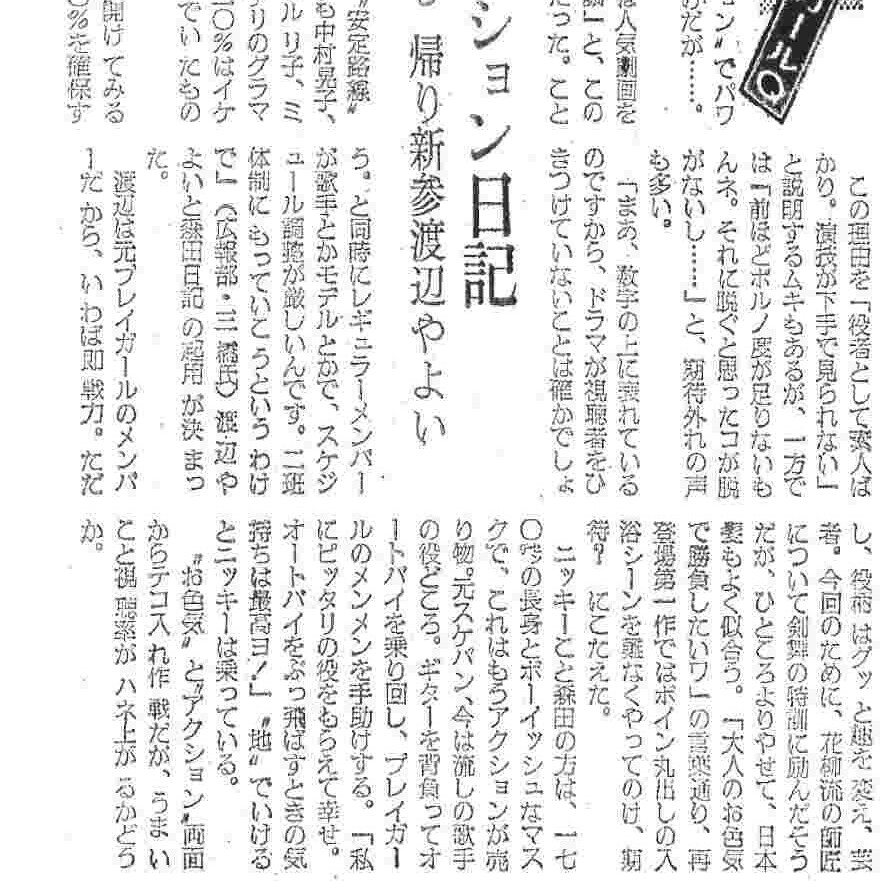 ガールQ
ョン〟でパワ
だが……。
は人気劇画を
」と、この
だった。こと
ション日記
帰り新参渡辺やよい
〝安定路線〟
も中村晃子、
ルリ子、ミ
リのグラマ
0%はイケ
でいたもの
開けてみる
0%を確保す
この理由を「役者として素人ば
かり。演技が下手で見られない」
と説明するムキもあるが、一方で
は「前ほどポルノ度が足りないも
んネ。それに脱ぐと思ったコが脱
がないし……」と、期待外れの声
も多い。
「まあ、数字の上に表れている
のですから、ドラマが視聴者をひ
きつけていないことは確かでしょ
う。と同時にレギュラーメンバー
が歌手とかモデルとかで、スケジ
ュール調整が厳しいんです。二班
体制にもっていこうというわけ
で」(広報部・三橋氏)渡辺や
よいと森田日記の起用が決まっ
た。
渡辺は元プレイガールのメンバ
ーだから、いわば即戦力。ただ
し、役柄はグッと趣を変え、芸
者。今回のために、花柳流の師匠
について剣舞の特訓に励んだそう
だが、ひところよりやせて、日本
髪もよく似合う。「大人のお色気
で勝負したいワ」の言葉通り、再
登場第一作ではボイン丸出しの入
浴シーンを難なくやってのけ、期
待？にこたえた。
ニッキーこと森田の方は、一七
〇㌢の長身とボーイッシュなマス
クで、これはもうアクションが売
り物。元スケバン、今は流しの歌手
の役どころ。ギターを背負ってオ
ートバイを乗り回し、プレイガー
ルのメンメンを手助けする。「私
にピッタリの役をもらえて幸せ。
オートバイをぶっ飛ばすときの気
持ちは最高ヨ！」〝地〟でいける
とニッキーは乗っている。
〝お色気〟と〝アクション〟両面
からテコ入れ作戦だが、うまい
こと視聴率がハネ上がるかどう
か。